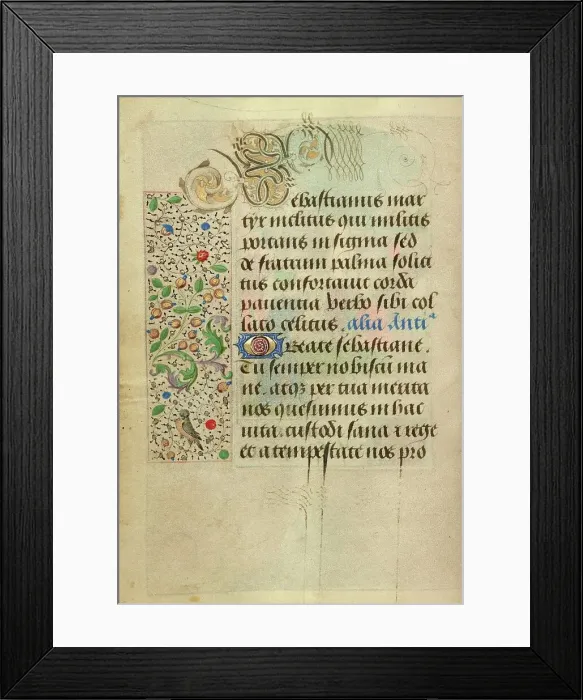 Sebastianus mar
tyr inclitus qui militis
portans insignia sed
de fratrum palma solici
tus confortauit corda
pauentia Verbo sibi col
lato celitus. alia Anti^a
O beate sebastiane.
Tu semper nobiscū ma
ne. atqꝫ per tua merita
nos quesumus in hac
uita. custodi sana ⁊ rege
et a tempestate nos pro